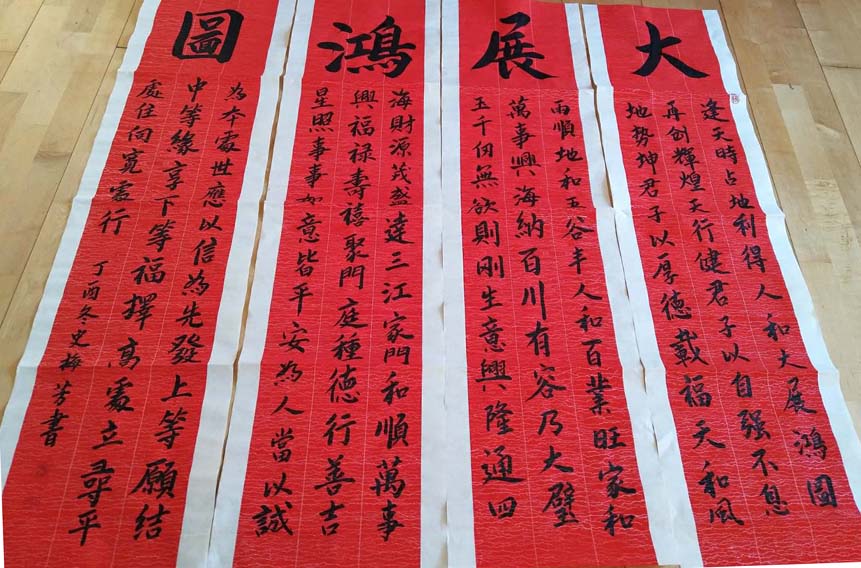 大展鴻圖
逢天時占地利得人和大展鴻圖
再创輝煌天行健君子以自强不息
地勢坤君子以厚德載福天和風
雨順地和五谷丰人和百業旺家和
萬事興海納百川有容乃大璧
玉千仞無欲則刚生意興隆通四
海財源茂盛達三江家門和順萬事
興福禄壽禧聚門庭種德行善吉
星照事事如意皆平安為人當以誠
為本處世應以信為先發上等願結
中等緣享下等福擇高處立尋平
處住向寬處行
丁酉冬史梅芳書